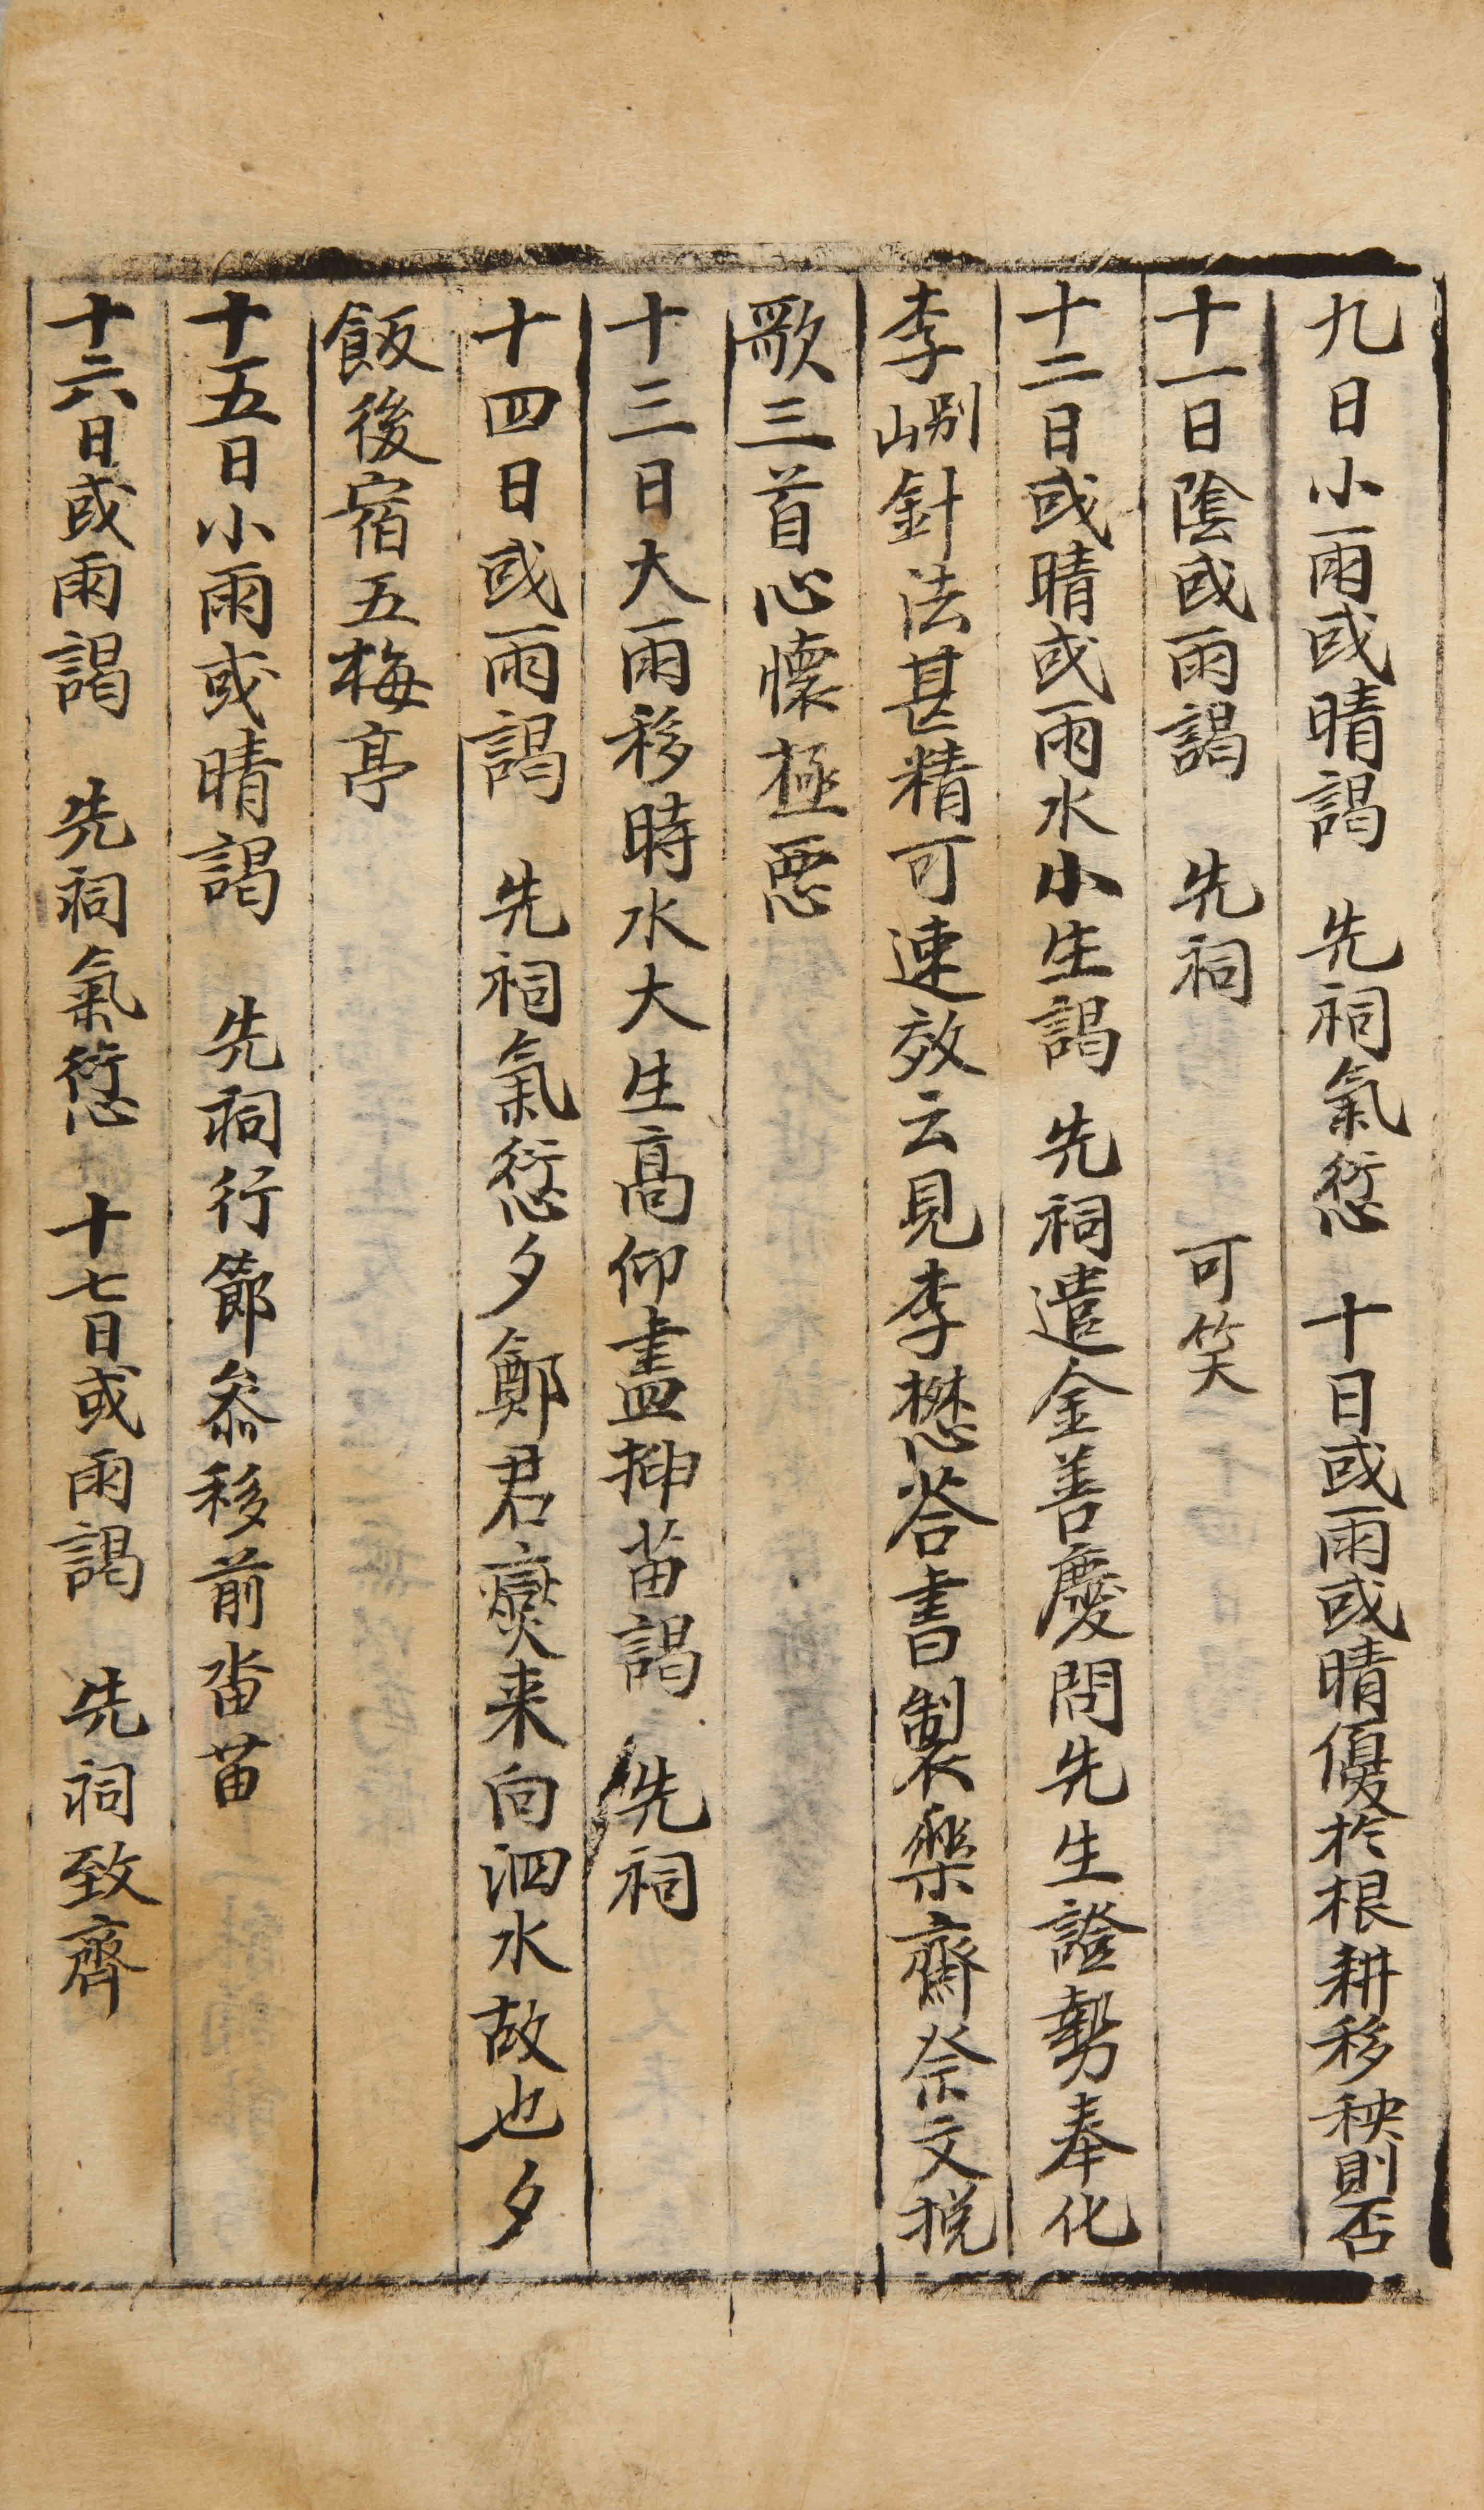 九日小雨或晴謁　先祠氣愆　十日或雨或晴優於根耕移秧則否
十一日陰或雨謁　先祠　　可笑
十二日或晴或雨水小生謁　先祠遣金善慶問先生證勢奉化
李峢針法甚精可速效云見李懋答書製樂齋祭文挽
歌三首心懷極惡
十三日大雨移時水大生高仰盡揷苗謁　先祠
十四日或雨謁　先祠氣愆夕鄭君燮来向泗水故也夕
飯後宿五梅亭
十五日小雨或晴謁　先祠行節叅移前畓苗
十六日或雨謁　先祠氣愆　十七日或雨謁　先祠致齊